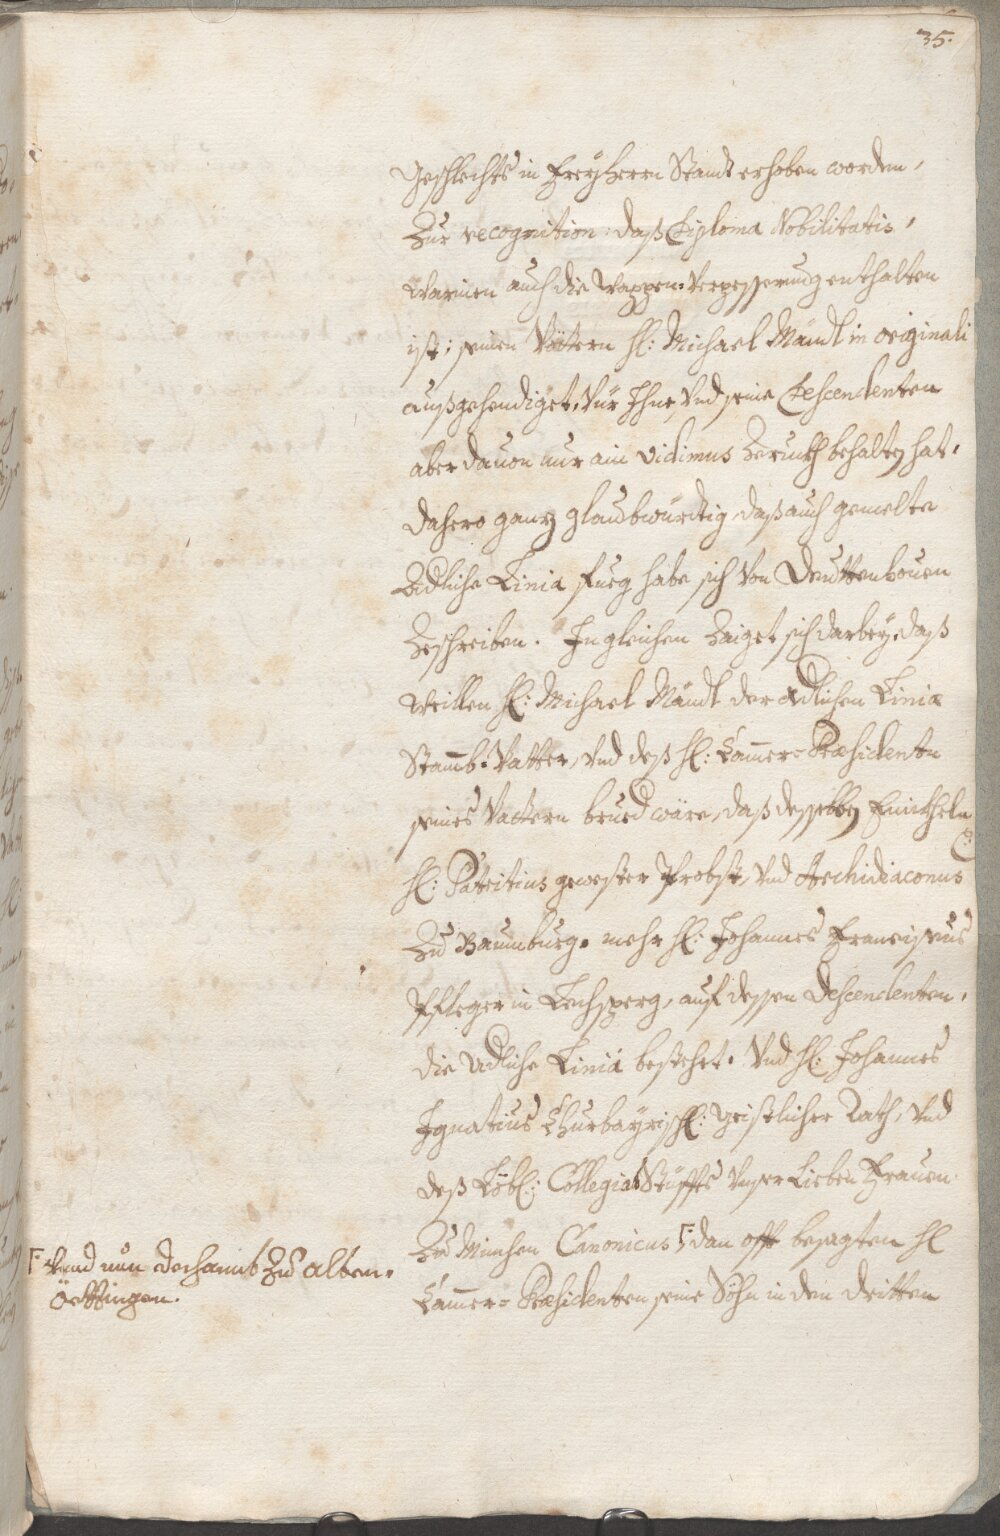 35.
Geschlechts in Freyherrn Standt erhoben worden,
Zur recognition: daß Diploma Nobilitatis,
Warinen auch die Wappen-Verpesserung enthalten
ist, seinen Vöttern H: Michael Mändl in originali
außgehendiget, Vür Ihne, Vnd seine Descendenten
aber dauon nur ain Vidimus Zerunkh behalten hat,
dahero ganz glaubwürdtig daß auch gemelte
Adliche Linia fueg habe sich Von Deuttenhouen
Zeschreiben. In gleichen Zaiget sich darbey, daß
Weillen H: Michael Mändl der adlichen Liniæ
Stamb-Vatter, Vnd deß H: Camer-Præsidentn
seines Vattern brued wäre, daß desselben Enickheln
H: Patritius gewester Probst, Vnd Archidiaconus
Zu Baumburg. mehr H: Johannes Franciscus
Pfleger in Lechsperg, auf dessen Descendenten,
die Adliche Linia bestehet. Vnd H: Johannes
Ignatius Churbayrisch: Geistlicher Rath, Vnd
deß Löbl: Collegiat Stüffts Vnser Lieben Frauen
Zu München Canonicus |: dan offt besagten H
Camer-Præsidenten seine Söhn in den dritten
|: Vnnd nun Dechannt Zu Alten-
Öettingen.